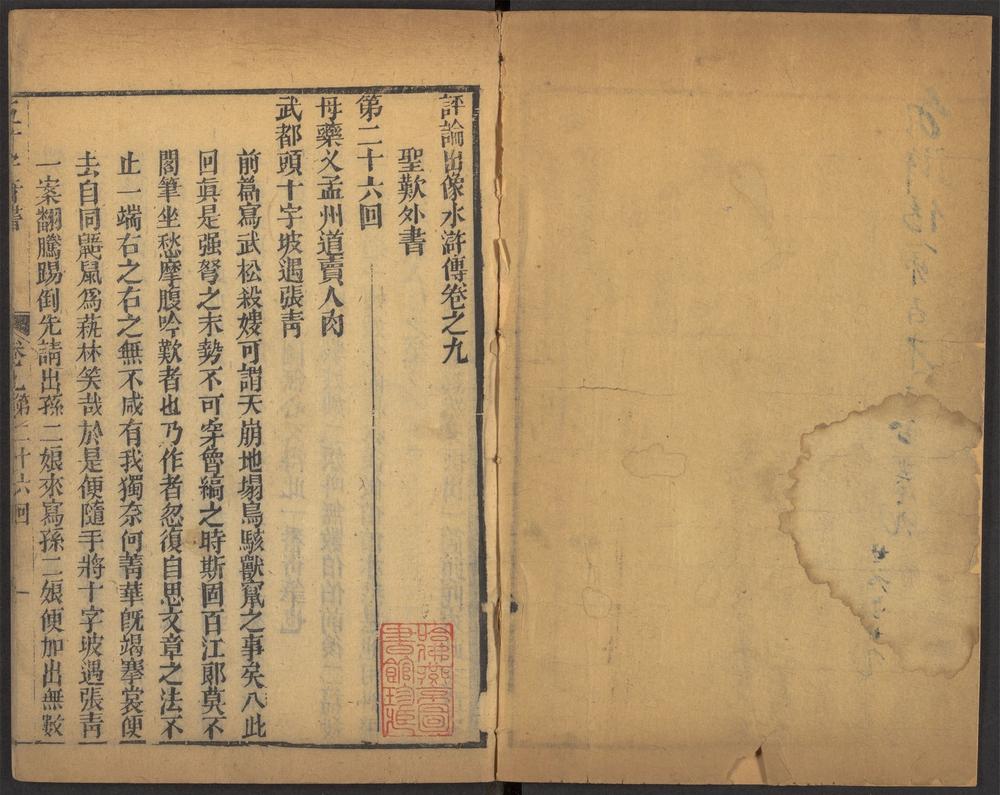 評論出像水滸傳卷之九
聖歎外書
第二十六回
母藥乂孟州道賣人肉
武都頭十字坡遇張青
前篇寫武松殺嫂可謂天崩地塌鳥駭獸竄之事矣入此
回眞是强弩之末勢不可穿魯縞之時斯固百江郞莫不
閣筆坐愁摩腹吟歎者也乃作者忽復自思文章之法不
止一端右之右之無不咸有我獨奈何菁華旣竭搴裳便
去自同鼯鼠爲蓺林笑哉於是便隨手將十字坡遇張青
一案翻騰踢倒先請出孫二娘來寫孫二娘便加出無數
卷九第二十六回
一
哈佛燕京圖
書館珍藏